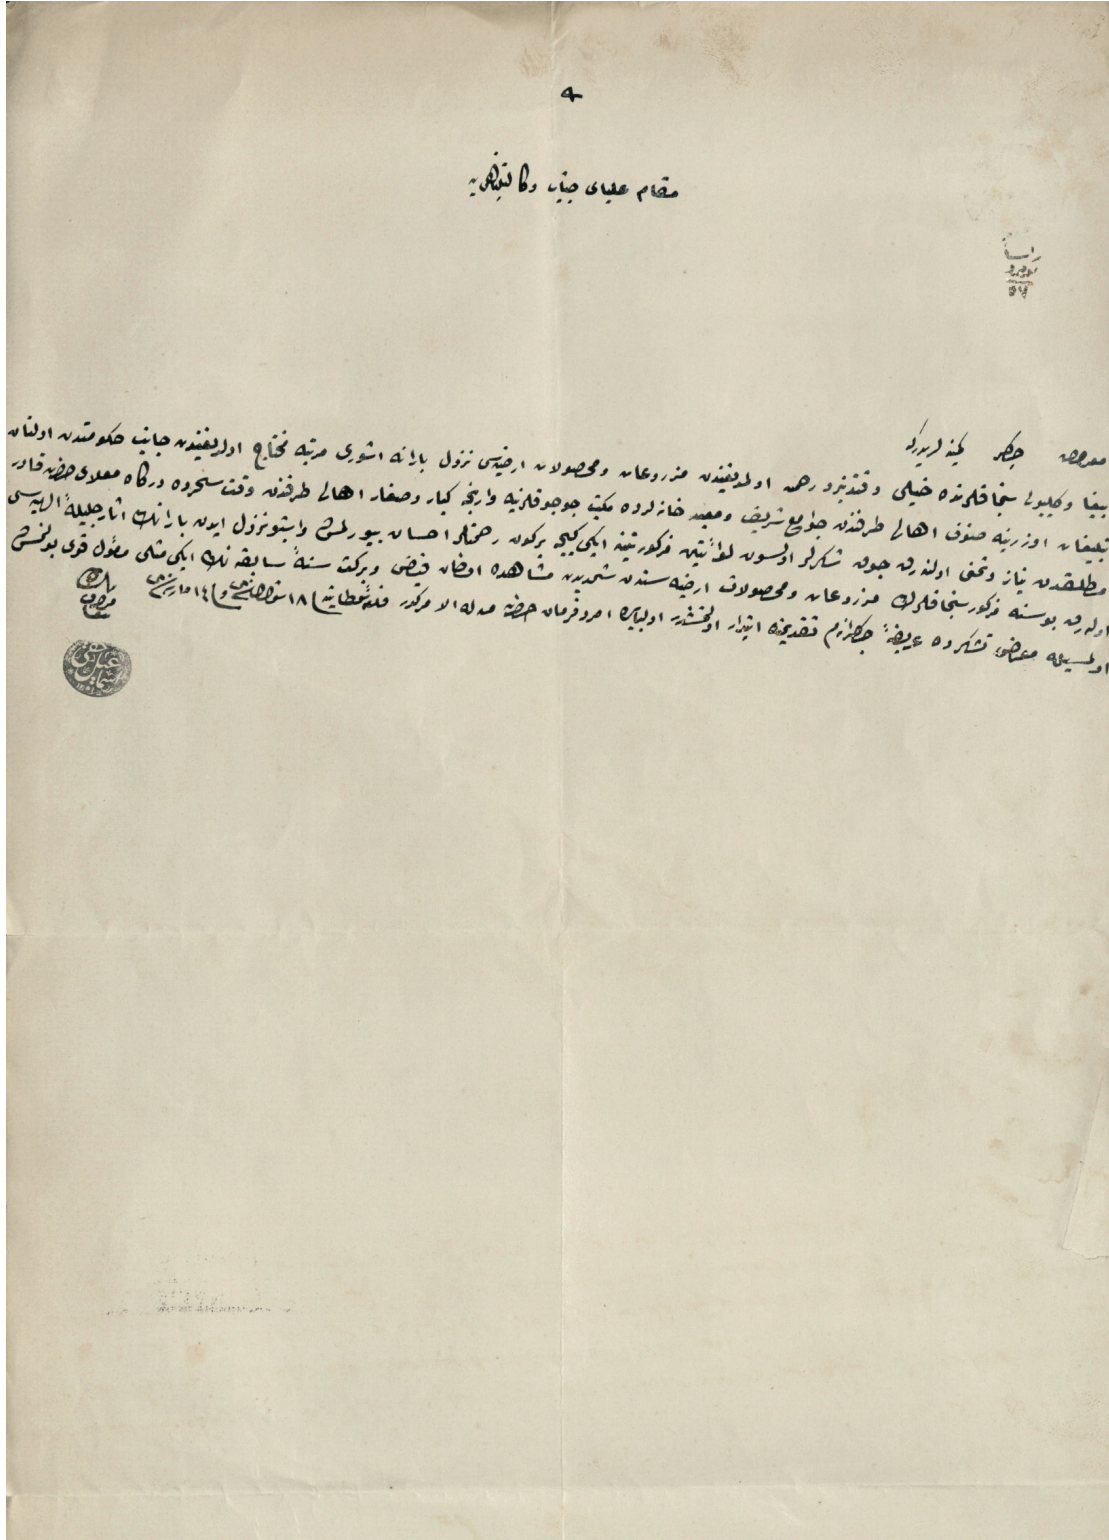 مقام عليای جناب وكالتپناهی‌يه
معروض چاكر كمينه‌لريدركه
بيغا و كليبولی سنجاقلرنده خيلی وقتدنبرو رحمت اولمديغندن مزروعات و محصولات ارضيه‌سی نزول بارانه اشوری مرتبه محتاج اولديغندن جانب حكومتدن اولنان
تبليغات اوزرينه صنوف اهالی طرفندن جوامع شريف و معبد خانه‌لرده مكتب چوجوقلرينه وارنجه كبار و صغار اهالی طرفندن وقت سحرده درگاه معلای حضرت قادر
مطلقدن نياز و تمنی اولنه‌رق چوق شكرلر اولسون لوائين مذكورتينه ايكی كيجه بركون رحمتلر احسان بيورلمش و اشبو نزول ايدن بارانك اثار جليلهٔ الهيه‌سی
اوله‌رق بو سنه مذكور سنجاقلرك مزروعات و محصولات ارضيه‌سندن شمديدن مشاهده اولنان فيض و بركت سنهٔ سابقه‌نك ايكی مثلی مأمول قوی بولنمش
اولمسيله معرض تشكرده عريضهٔ چاكرانه‌م تقديمنه ابتدار اولنمشدر اولبابده امر و فرمان حضرت من له الامركدر فی ١٨ و فی ١٤ مارت
متصرف